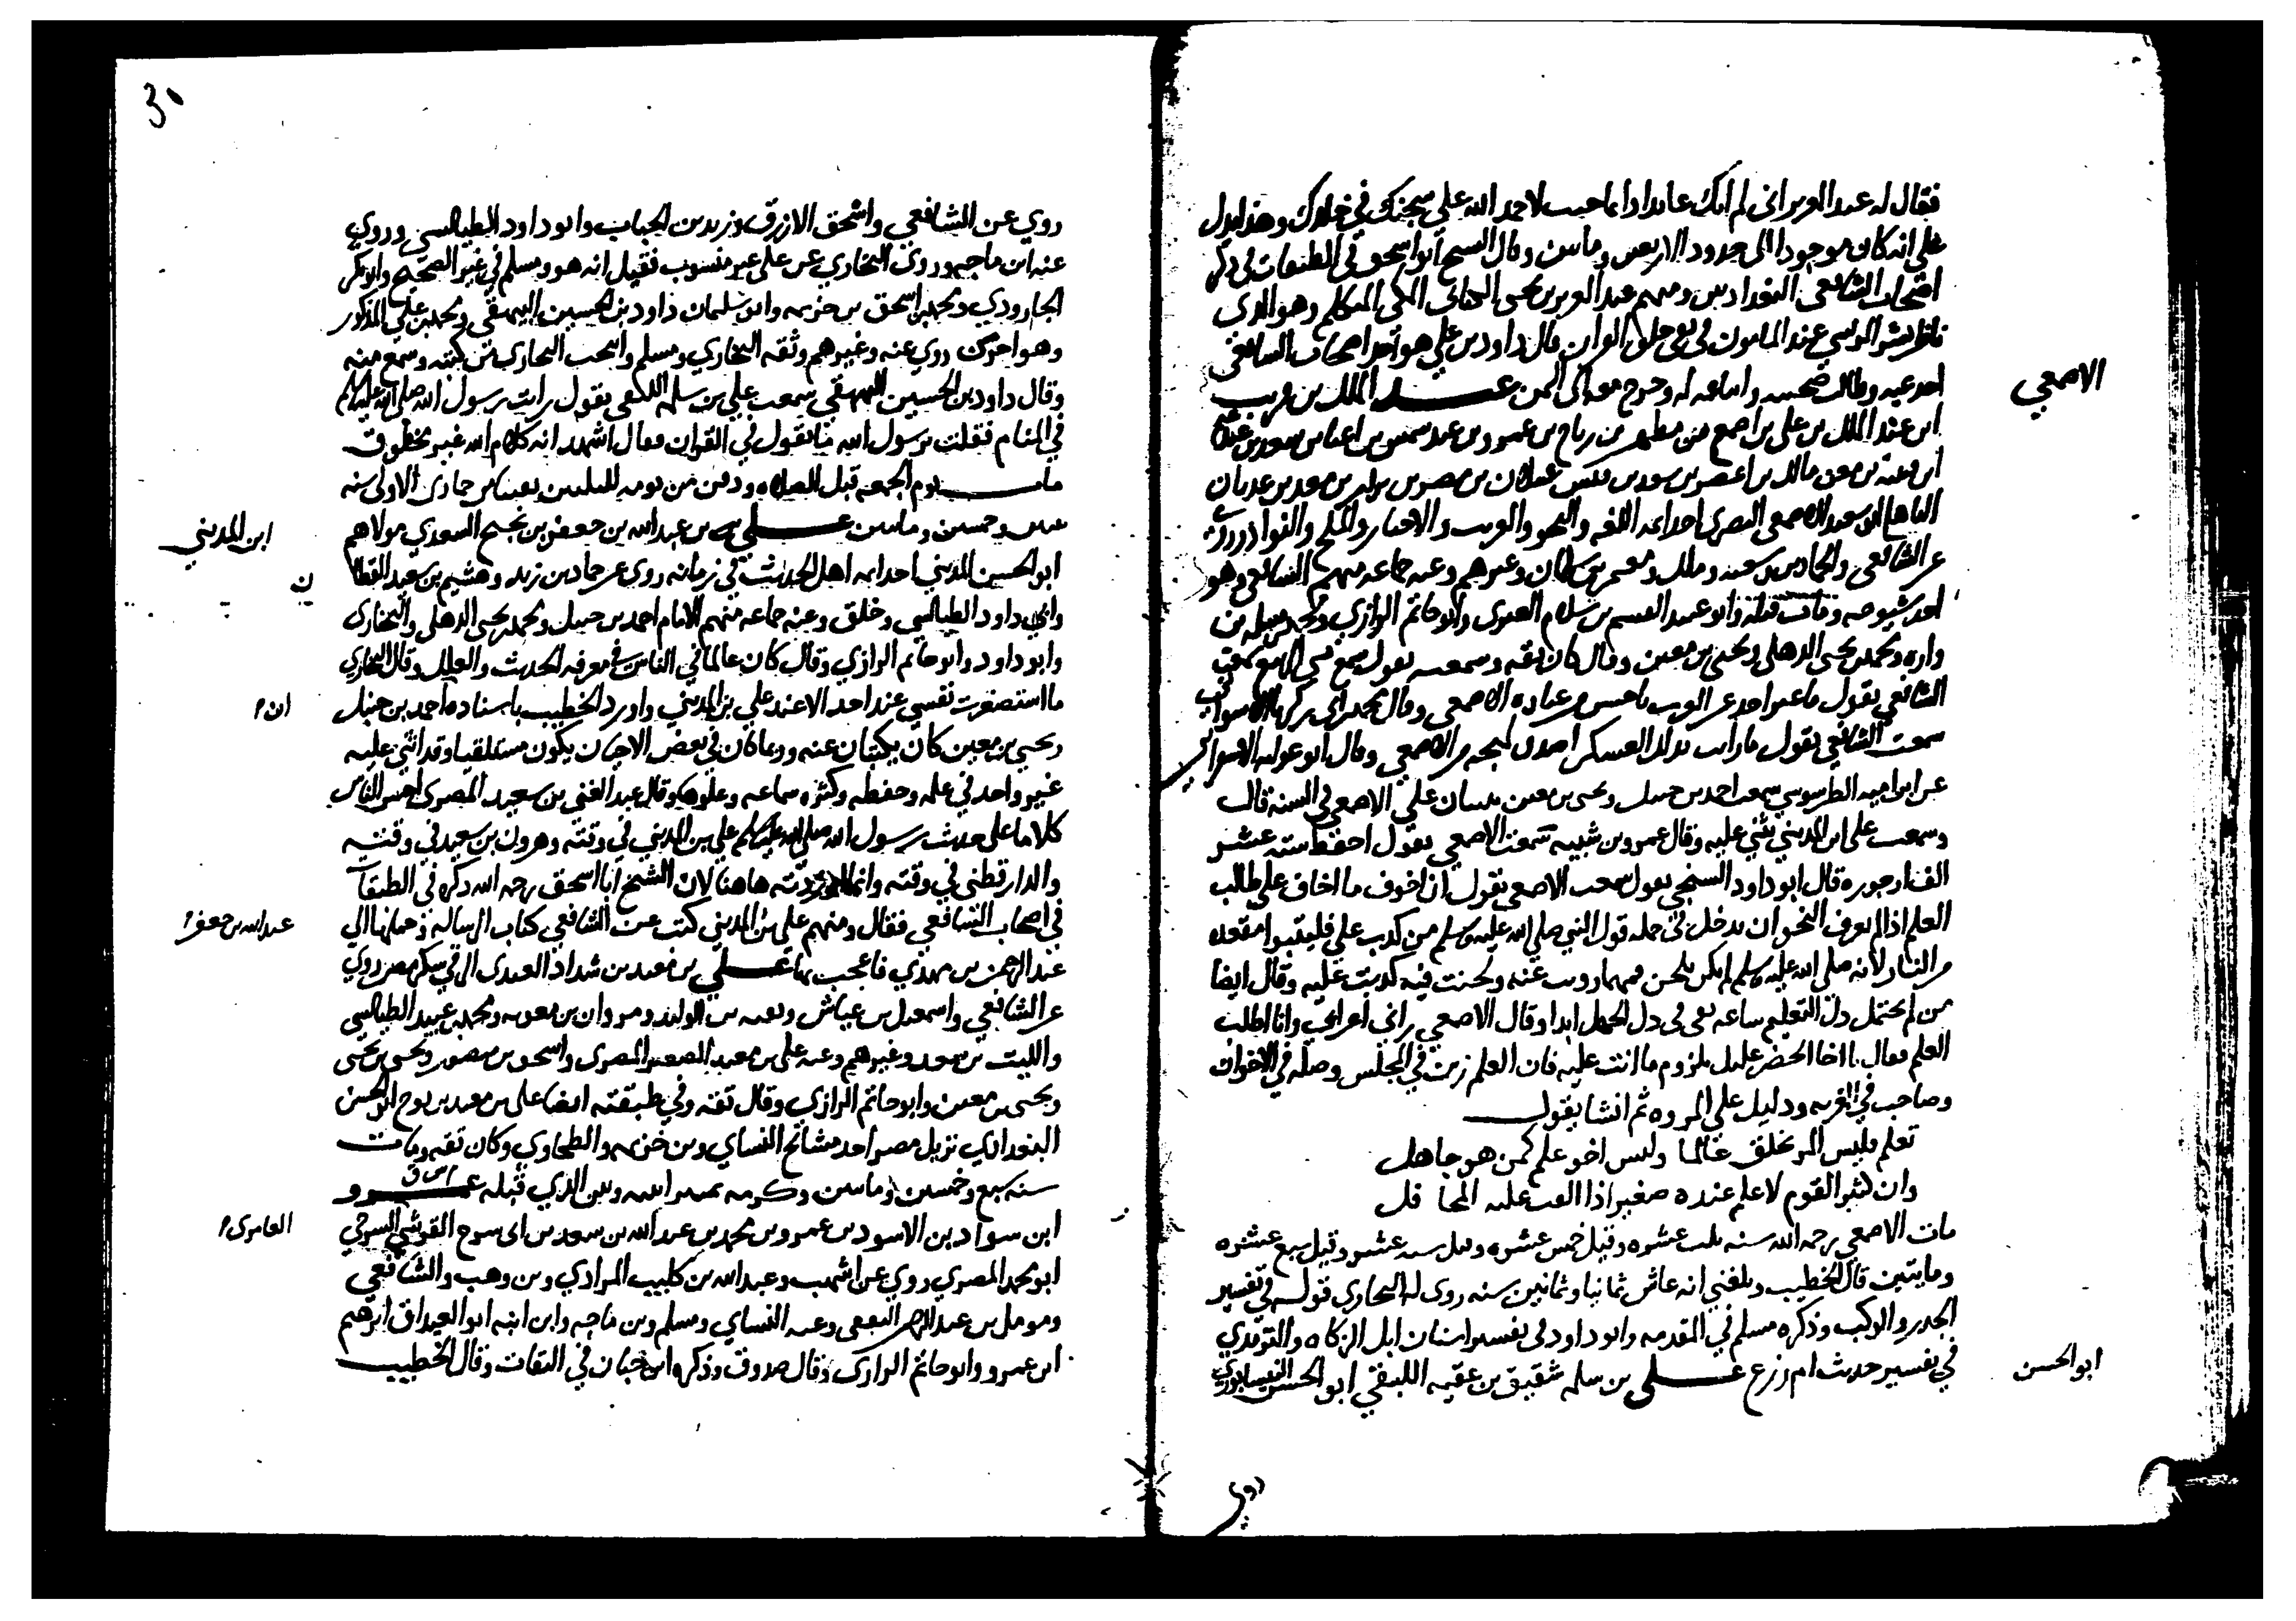 فقال له عبد العزيز اني لم ابك عابدا وانما حيت لاحمد الله علي سجنك في خلافك وهذا يدل
علي انه كان موجودا الى حدود الاربعين وماىىن وقال الشيخ ابو اسحق في الطبقات في ذكر
اصحاب الشافعي البغدادىين ومنهم عبد العزيز بن يحيى الكناني المكي المتكلم وهو الذي
ناظر بشر المريسي عند المامون في نفي خلق القران قال داود بن علي هو احد اصحاب الشافعي
اخذ عنه وطالت صحبته واتباعه له وخرج معه الى اليمن عبد الملك بن قريب
الاصمعي
ابن عبد الملك بن علي بن اصمع بن مطهر بن رياح بن عمرو بن عبد شمس بن اعيا بن سعد بن عبد
ابن غنم بن معن بن مالك بن اعصر بن سعد بن قيس عيلان بن مضر بن نزار بن معد بن عدنان
الباهلي ابو سعيد الاصمعي البصري احد ائمة اللغه والنحو والغريب والاخبار والملح والنوادر روى
عن الشافعي والحمادين وشعبه ومالك ومعتمر بن سليمان وغيرهم وعنه جماعه منهم الشافعي وهو
احد شيوخه ومات قبله وابو عبيد القسم بن سلام وابو حاتم الرازي ومحمد بن مسلم بن
واره ومحمد بن يحيى الذهلي ويحيى بن معين وقال كان ثقه وسمعته يقول سمع مني مالك سمعت
الشافعي يقول ما عبر احد عن العرب باحسن من عبارة الاصمعي وقال محمد بن ابي زكير الاسواني
سمعت الشافعي يقول ما رايت بذلك العسكر اصدق لهجه من الاصمعي وقال ابو عوانه الاسفرايني
عن ابي اميه الطرسوسي سمعت احمد بن حنبل ويحيى بن معين يثنيان علي الاصمعي في السنه قال
وسمعت علي ابن المديني يثني عليه وقال عمرو بن شبيه سمعت الاصمعي يقول احفظ سته عشر
الف ارجوزه قال ابو داود السنجي يقول سمعت الاصمعي يقول ان اخوف ما اخاف على طالب
العلم اذا لم يعرف النحو ان يدخل في جمله قول النبي صلي الله عليه وسلم من كذب علي فليتبوا مقعده
من النار لانه صلي الله عليه وسلم لم يكن يلحن فمهما رويت عنه ولحنت فيه كذبت عليه وقال ايضا
من لم يحتمل ذل التعليم ساعه بقي في ذل الجهل ابدا وقال الاصمعي راني اعرابي وانا اطلب
العلم فقال يا اخا الحضر عليك بلزوم ما انت عليه فان العلم زين في المجلس وصله في الاخوان
وصاحب في الغربه ودليل علي المروه ثم انشا يقول
تعلم فليس المر يخلق عالما وليس اخو علم كمن هو جاهل
وان كبير القوم لا علم عنده صغير اذا التفت عليه المحافل
مات الاصمعي رحمه الله سنه ثلث عشره وقيل خمس عشره وقيل سته عشر وقيل سبع عشره
ومايتين قال الخطيب وبلغني انه عاش ثمانيا وثمانين سنه روى له البخاري قوله في تفسير
الجدر والوكب وذكره مسلم في المقدمه وابو داود في تفسير اسنان ابل الزكاه والترمذي
في تفسير حديث ام زرع علي بن سلمه شقيق بن عقبه اللبقي ابو الحسن النيسابوري
ابو الحسن
روي
30
روي عن الشافعي واسحق الازرق وزيد بن الحباب وابو داود الطيالسي وروي
عنه ابن ماجه وروى البخاري عن علي غير منسوب فقيل انه هو ومسلم في غير الصحيح وابو بكر
الجارودي ومحمد بن اسحق بن خزيمه وابو سليمان داود بن الحسين البيهقي ومحمد بن علي المذكور
وهو اخر من روي عنه وغيرهم وثقه البخاري ومسلم وانتخب البخاري من كتبه وسمع منه
وقال داود بن الحسين البيهقي سمعت علي بن سلمه اللبقي يقول رايت رسول الله صلى الله عليه وسلم
في المنام فقلت يرسول الله ما تقول في القران فقال اشهد انه كلام الله غير مخلوق
مات يوم الجمعه قبل الصلاه ودفن من يومه لليلتين بقيتا من جمادى الاولى سنه
وخمسين ومايتين علي بن عبد الله بن جعفر بن نجيح السعدي مولاهم
ابن المديني
ابو الحسين المديني احد ايمه اهل الحديث في زمانه روى عن حماد بن زيد وهشيم بن سعيد القطا
ن
وابي داود الطيالسي وخلق وعنه جماعه منهم الامام احمد بن حنبل ومحمد بن يحيى الذهلي والبخاري
وابو داود وابو حاتم الرازي وقال كان عالما في الناس في معرفه الحديث والعلل وقال البخاري
ما استصغرت نفسي عند احد الا عند علي بن المديني واورد الخطيب باسناده احمد بن حنبل
ان
ويحيى بن معين كان يكتبان عنه وربما كان في بعض الاحيان يكون مستلقيا وقد اثني عليه
غير واحد في علمه وحفظه وكثره سماعه وعلوه وقال عبد الغني بن سعيد المصري احسن الناس
كلاما على حديث رسول الله صلى الله عليه وسلم علي بن المديني في وقته وهرون بن سعيد في وقته
والدارقطني في وقته وانما اوردته هاهنا لان الشيخ ابا اسحق رحمه الله ذكره في الطبقات
في اصحاب الشافعي فقال ومنهم علي بن المديني كتب عن الشافعي كتاب الرساله وحملها الي
عبد الله بن جعفر
عبد الرحمن بن مهدي فاعجب بها علي بن معبد بن شداد العبدي الرقي سكن مصر روي
عن الشافعي واسمعيل بن عياش وبقيه بن الوليد ومروان بن معويه ومحمد بن عبيد الطيالسي
والليث بن سعد وغيرهم وعنه علي بن معبد الصغير المصري واسحق بن منصور ويحيى بن يحيى
ويحيى بن معين وابو حاتم الرازي وقال ثقه وفي طبقته ايضا علي بن معبد بن نوح ابو الحسن
البغدادي نزيل مصر احد مشائخ النساي وبن خزيمه والطحاوي وكان ثقه ومات
سنه سبع وخمسين ومايتين وذكرته تمييزا بينه وبين الذي قبله عمرو
ابن سواد بن الاسود بن عمرو بن محمد بن عبد الله بن سعد بن ابي سرح القرشي السرحي
العامري
ابو محمد المصري روي عن اشهب وعبد الله بن كليب المرادي وبن وهب والشافعي
ومومل بن عبد الرحمن الثقفي وعنه النساي ومسلم وبن ماجه وابن ابنه ابو الغيداق ابرهيم
ابن عمرو وابو حاتم الرازي وقال صدوق وذكره ابن حبان في الثقات وقال الخطيب